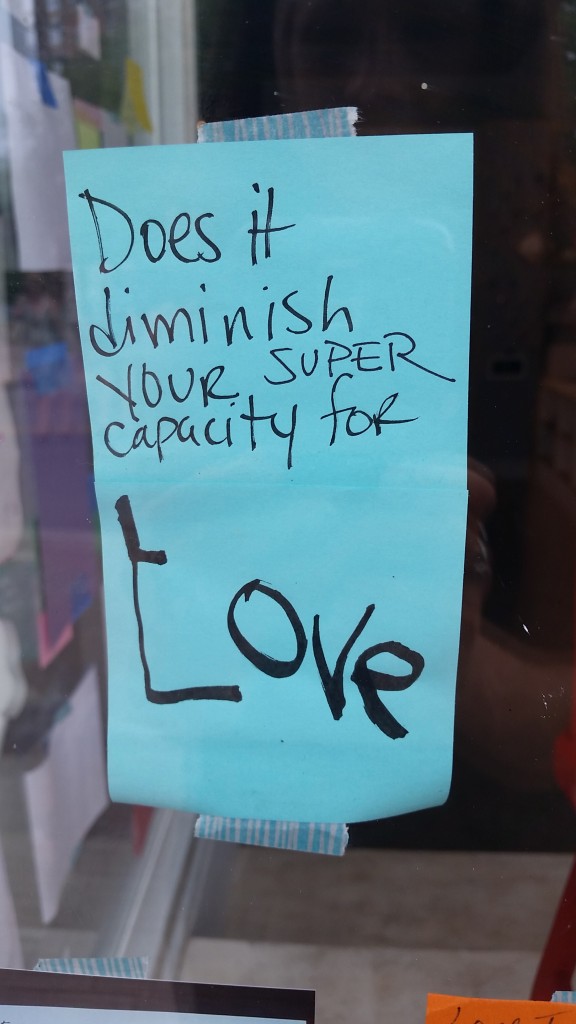 Does it
diminish
YOUR SUPER
capacity for
Love